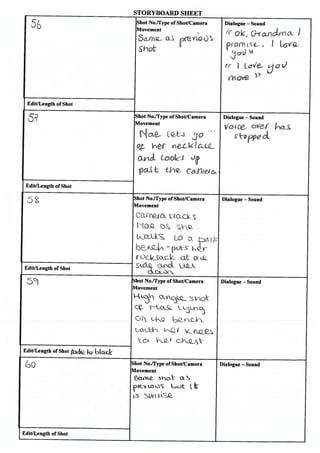 STORYBOARD SHEET
56
Shot No./Type of Shot/Camera
Movement
Same as previous
shot
Dialogue – Sound
"Ok, Grandma I
promise. I love
you"
"I love you
more"
Edit/Length of Shot
57
Shot No./Type of Shot/Camera
Movement
Mae lets go
of her necklace
and looks up
past the camera.
Dialogue – Sound
Voice over has
stopped
Edit/Length of Shot
58
Shot No./Type of Shot/Camera
Movement
Camera tracks
Mae as she
walks to a park
bench - puts her
rucksack at one
side and lies
down
Dialogue – Sound
Edit/Length of Shot
59
Shot No./Type of Shot/Camera
Movement
High angle shot
of Mae lying
on the bench
with her knees
to her chest
Dialogue – Sound
Edit/Length of Shot fade to black
60
Shot No./Type of Shot/Camera
Movement
Same shot as
previous but it
is sunrise
Dialogue – Sound
Edit/Length of Shot